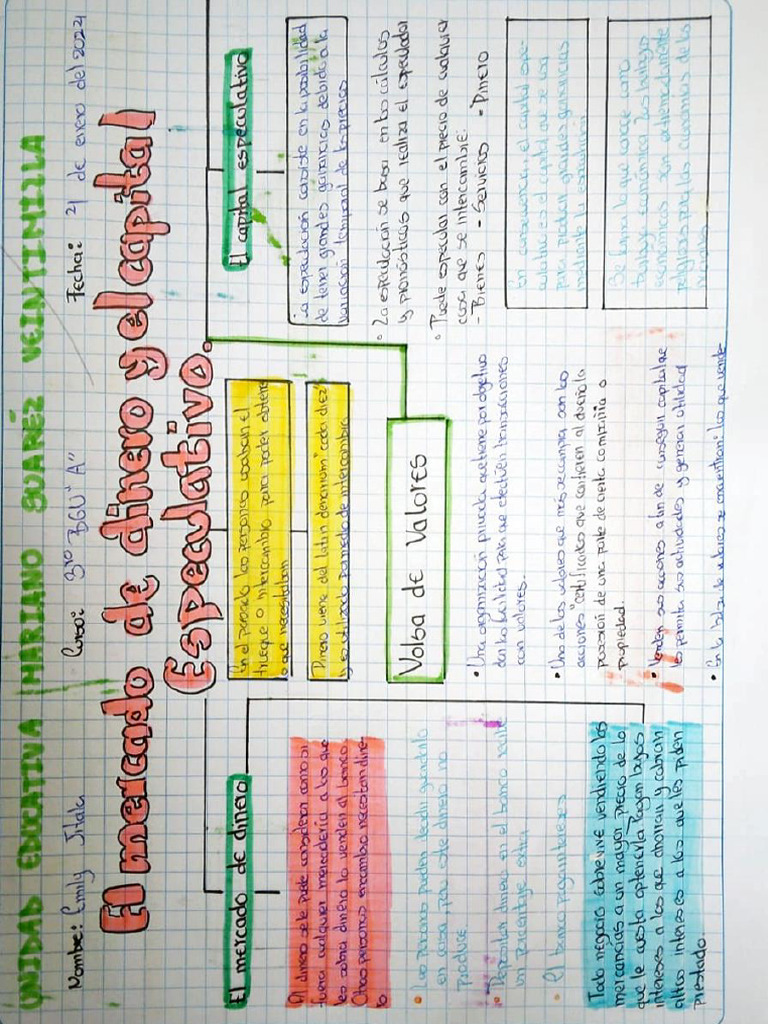 UNIDAD EDUCATIVA MARIANO SUARÉZ VEINTIMILLA
Nombre: Emily Jitala Curso: 3ro BGU "A" Fecha: 21 de enero del 2024
El mercado de dinero y el capital
Especulativo.
El mercado de dinero
Al dinero se le puede considerar como si
fuera cualquier mercadería a los que
les sobra dinero lo venden al banco
Otras personas encambio necesitan dine
ro
• Las personas pueden decidir guardarlo
en casa pero este dinero no
produce.
• Depositan dinero en el banco recibe
un porcentaje extra
• El banco paga intereses
Todo negocio sobrevive vendiendo las
mercancías a un mayor precio de lo
que le cuesta obtenerla Pagan bajos
intereses a los que ahorran y cobran
altos intereses a los que les piden
prestado.
En el pasado las personas usaban el
trueque o intercambio para poder obtener
lo que necesitaban
Dinero viene del latín denarium "cada diez"
y es utilizado por medio de intercambio
Volsa de Valores
• Una organización privada que tiene por objetivo
dar la facilidad para que efectúen transacciones
con valores.
• Uno de los valores que más se compra son las
acciones "certificados que confieren al dueño la
posesión de una parte de cierta compañía o
propiedad.
• Venden sus acciones a fin de conseguir capital que
les permita sus actividades y generar utilidad
• En la bolsa de valores se encuentran: los que vende
El capital especulativo
La especulación consiste en la posibilidad
de tener grandes ganancias debido a la
variación temporal de los precios
• La especulación se basa en los cálculos
y pronósticos que realiza el especulador
• Puede especular con el precio de cualquier
cosa que se intercambie.
- Bienes - Servicios - Dinero
En consecuencia, el capital espe-
culativo es el capital que se usa
para producir grandes ganancias
mediante la especulación.
Se logra lo que conoce como
burbuja económica las burbujas
económicas son extremadamente
peligrosas para las economías de las